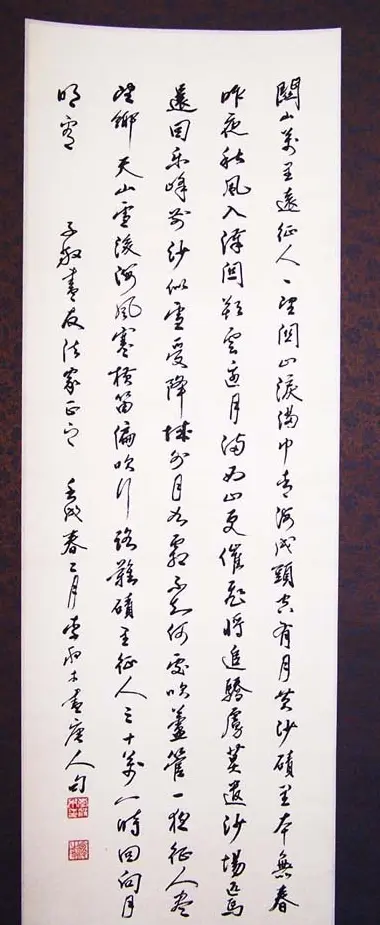 關山萬里遠征人一望關山淚滿巾青海戍頭空有月黃沙磧里本無春
昨夜秋風入漢關朔雲邊月滿西山更催飛將追驕虜莫遣沙場匹馬
還回樂峰前沙似雪受降城外月如霜不知何處吹蘆管一夜征人盡
望鄉天山雪後海風寒橫笛偏吹行路難磧里征人三十萬一時回向月
明看 友法家正之 壬戌春二月 書唐人句